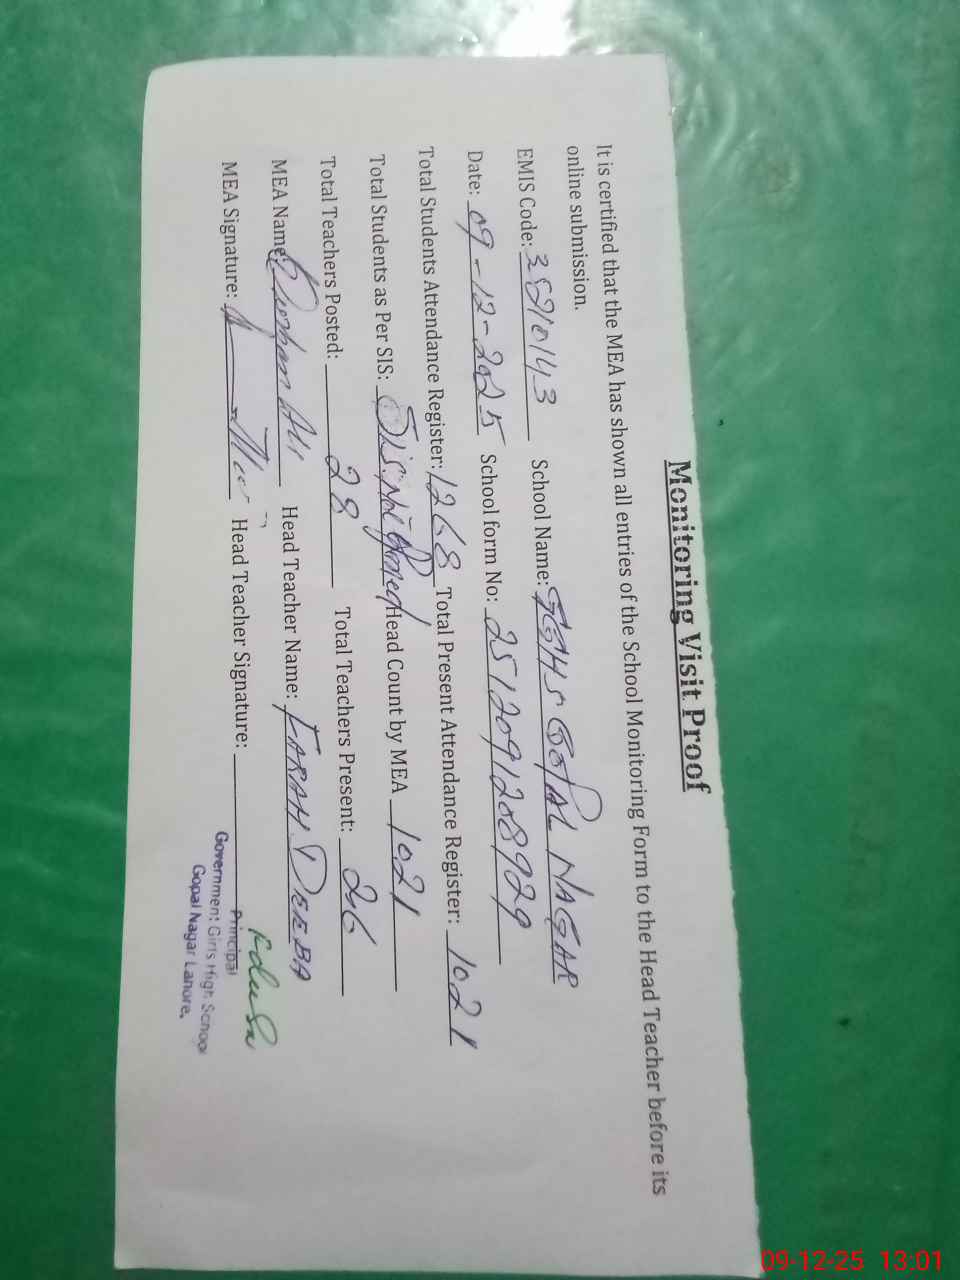 Monitoring Visit Proof
It is certified that the MEA has shown all entries of the School Monitoring Form to the Head Teacher before its
online submission.
EMIS Code: 35210143 School Name: GGHS GOPAL NAGAR
Date: 09-12-2025 School form No: 2512091208929
Total Students Attendance Register: 1268 Total Present Attendance Register: 1021
Total Students as Per SIS: Head Count by MEA 1021
Total Teachers Posted: 28 Total Teachers Present: 26
MEA Name: Ali Head Teacher Name: FARAH DEEBA
MEA Signature: Head Teacher Signature:
Principal
Government Girls High School
Gopal Nagar Lahore.
09-12-25 13:01